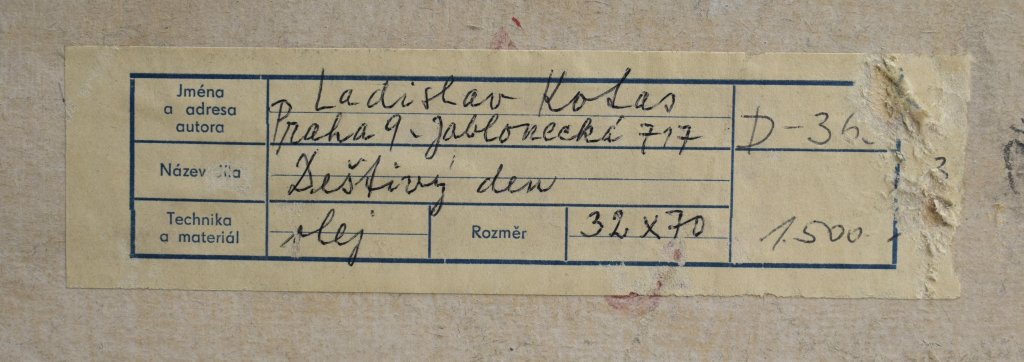 Jména
a adresa
autora
Ladislav Kotas
Praha 9 - Jablonecká 717
D-36
Název díla
Deštivý den
3
Technika
a materiál
olej
Rozměr
32 x 70
1.500